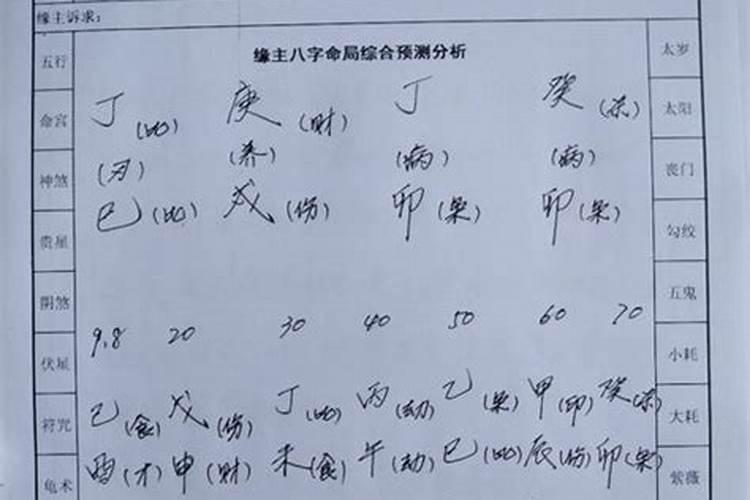 缘主诉求:
缘主八字命局综合预测分析
五行
命宫
神煞
贵星
阴煞
伏星
符咒
龟术
丁(比) 庚(财) 丁 癸(杀)
(刃) (养) (病) (病)
巳(比) 戌(伤) 卯(枭) 卯(枭)
9.8 20 30 40 50 60 70
己(食) 戊(伤) 丁(比) 丙(劫) 乙(枭) 甲(印) 癸(杀)
酉(才) 申(财) 未(食) 午(劫) 巳(比) 辰(伤) 卯(枭)
太岁
太阳
丧门
勾绞
五鬼
小耗
大耗
紫薇